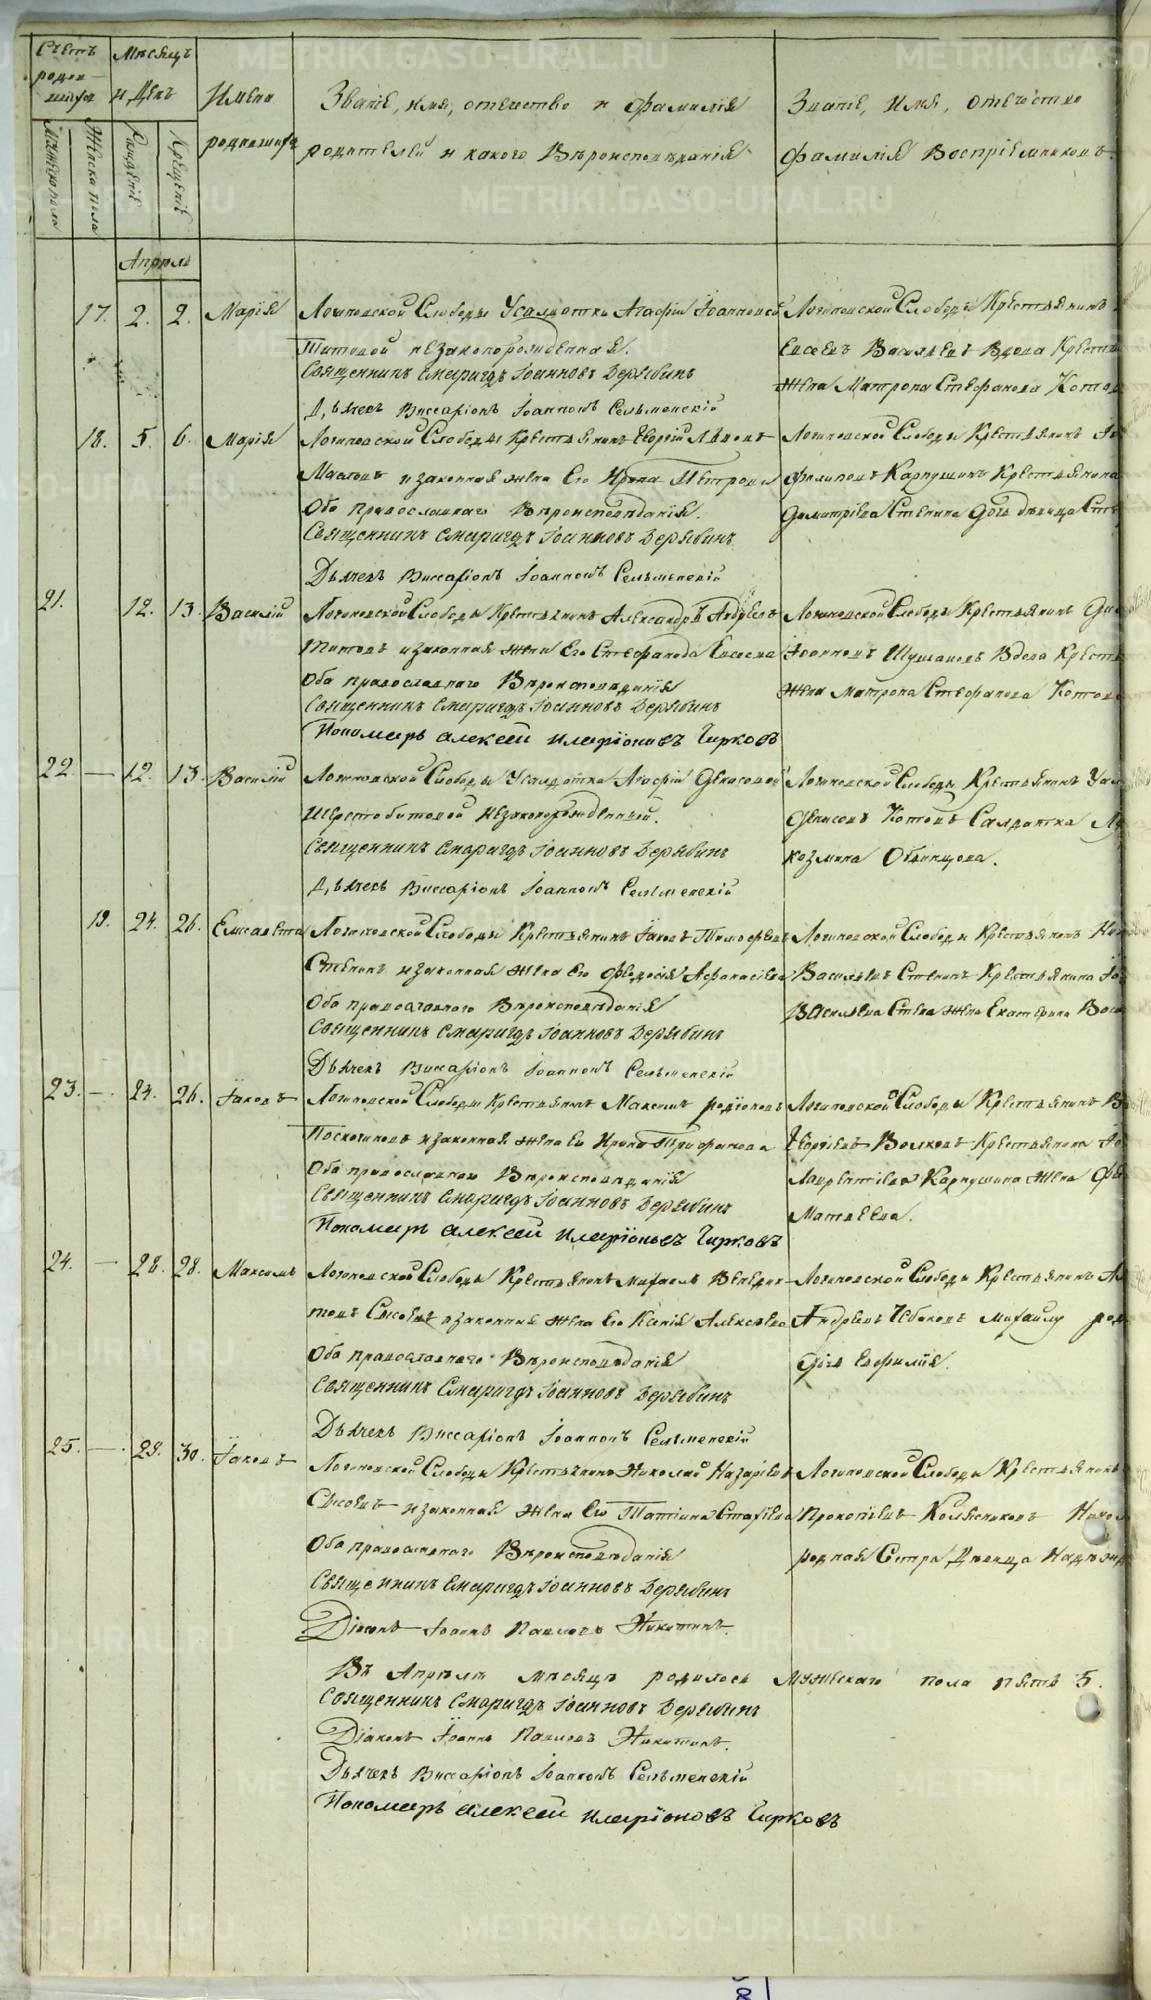 Счетъ родившихся
Мѣсяцъ и День
Имена родившихся
Званіе, имя, отечество и фамилія родителей и какого Вѣроисповѣданія
Званіе, имя, отечество фамилія Воспріемниковъ.
Мужеска пола
Женска пола
Рожденіе
Крещеніе
Апрель
17. 2. 2. Марія
Логиновской Слободы Усалдотки Агафіи Іоанновой
Титовой незаконорожденная.
Священникъ Смарагдъ Іоанновъ Дерябинъ
Дьячекъ Виссаріонъ Іоанновъ Селѣменскій
Логиновской Слободы Крестьянинъ
Евсевъ Васильевъ Вдова Крест
жена Матрона Стефанова Котов
18. 5. 6. Марія
Логиновской Слободы Крестьянинъ Георгій Львовъ
Масловъ и законная жена Его Ирина Петрова
Оба православнаго Вѣроисповѣданія.
Священникъ Смарагдъ Іоанновъ Дерябинъ
Дьячекъ Виссаріонъ Іоанновъ Селѣменскій
Логиновской Слободы Крестьянинъ
Филиповъ Карпушинъ Крестьянина
Димитріева Стенина Дочь дѣвица Сте
21. 12. 13. Василій
Логиновской Слободы Крестьянинъ Александръ Андреевъ
Титовъ и законная жена Его Стефанида Евсеева
Оба православнаго Вѣроисповѣданія
Священникъ Смарагдъ Іоанновъ Дерябинъ
Пономарь Алексей Иларіоновъ Чирковъ
Логиновской Слободы Крестьянинъ
Іоанновъ Шушановъ Вдова Крест
жена Матрона Стефанова Котова
22. — 12. 13. Василій
Логиновской Слободы Усалдотка Агафіи Денисовой
Шерстобитовой незаконорожденный.
Священникъ Смарагдъ Іоанновъ Дерябинъ
Дьячекъ Виссаріонъ Іоанновъ Селѣменскій
Логиновской Слободы Крестьянинъ
Денисовъ Котовъ Салдатка
козмина Обвинцова.
19. 24. 26. Елисавета
Логиновской Слободы Крестьянинъ Іаковъ Тимофеевъ
Стенинъ и законная жена Его Феодосія Афанасіева
Оба православнаго Вѣроисповѣданія
Священникъ Смарагдъ Іоанновъ Дерябинъ
Дьячекъ Виссаріонъ Іоанновъ Селѣменскій
Логиновской Слободы Крестьянинъ
Васильевъ Стенинъ Крестьянина
Васильева жена Екатерина
23. — 24. 26. Іаковъ
Логиновской Слободы Крестьянинъ Максимъ родіоновъ
Поскотиновъ и законная жена Его Ирина Трифанова
Оба православнаго Вѣроисповѣданія
Священникъ Смарагдъ Іоанновъ Дерябинъ
Пономарь Алексей Иларіоновъ Чирковъ
Логиновской Слободы Крестьянинъ
Георгіевъ Волковъ Крестьянина
Лаврентіева Карпушина жена
Матвеева.
24. — 28. 28. Максимъ
Логиновской Слободы Крестьянинъ Михаилъ Венедик-
товъ Сысоевъ и законная жена Его Ксенія Алексеева
Оба православнаго Вѣроисповѣданія
Священникъ Смарагдъ Іоанновъ Дерябинъ
Дьячекъ Виссаріонъ Іоанновъ Селѣменскій
Логиновской Слободы Крестьянинъ
Андреевъ Чебаковъ Михаилу
Дочь Евфимія.
25. — 29. 30. Іаковъ
Логиновской Слободы Крестьянинъ Николай Назаріевъ
Сысоевъ и законная жена Его Татіана Стахіева
Оба православнаго Вѣроисповѣданія
Священникъ Смарагдъ Іоанновъ Дерябинъ
Діаконъ Іоаннъ Павловъ Никитинъ.
Логиновской Слободы Крестьянинъ
Прокопіевъ Колясниковъ
родная Сестра Дѣвица
Въ Апрелѣ мѣсяцѣ родилось Мужескаго пола пять 5.
Священникъ Смарагдъ Іоанновъ Дерябинъ
Діаконъ Іоаннъ Павловъ Никитинъ.
Дьячекъ Виссаріонъ Іоанновъ Селѣменскій
Пономарь Алексей Иларіоновъ Чирковъ
METRIKI.GASO-URAL.RU